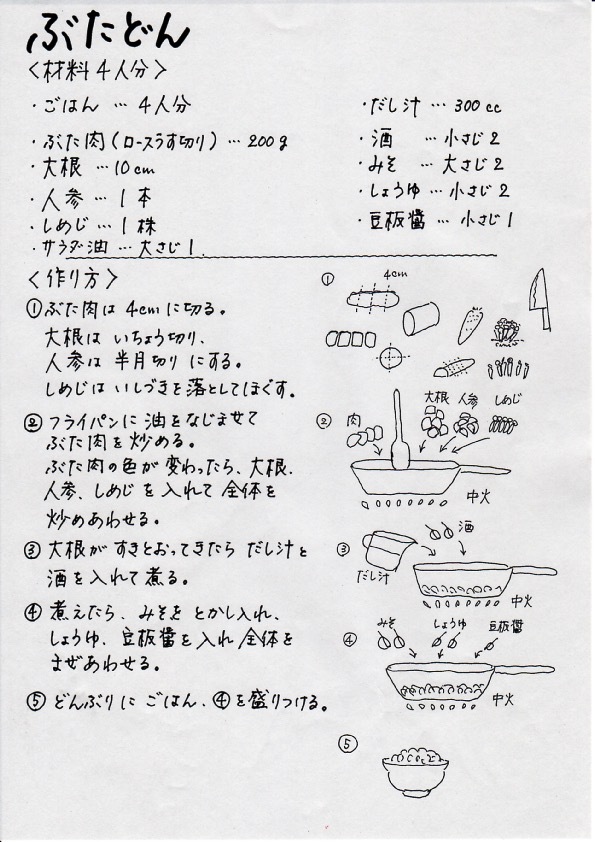 ぶたどん
〈材料4人分〉
・ごはん … 4人分
・ぶた肉(ロースうす切り) … 200g
・大根 … 10cm
・人参 … 1本
・しめじ … 1株
・サラダ油 … 大さじ1
・だし汁 … 300cc
・酒 … 小さじ2
・みそ … 大さじ2
・しょうゆ … 小さじ2
・豆板醤 … 小さじ1
〈作り方〉
① ぶた肉は 4cmに切る。
大根は いちょう切り、
人参は 半月切り にする。
しめじは いしづきを落としてほぐす。
② フライパンに 油をなじませて
ぶた肉を炒める。
ぶた肉の色が 変わったら、大根、
人参、しめじを入れて 全体を
炒めあわせる。
③ 大根が すきとおってきたら だし汁と
酒を入れて煮る。
④ 煮えたら、みそを とかし入れ、
しょうゆ、豆板醤を入れ 全体を
まぜあわせる。
⑤ どんぶりに ごはん、④を盛りつける。
① 4cm
② 肉 大根 人参 しめじ
中火
③ だし汁 酒
中火
④ みそ しょうゆ 豆板醤
中火
⑤